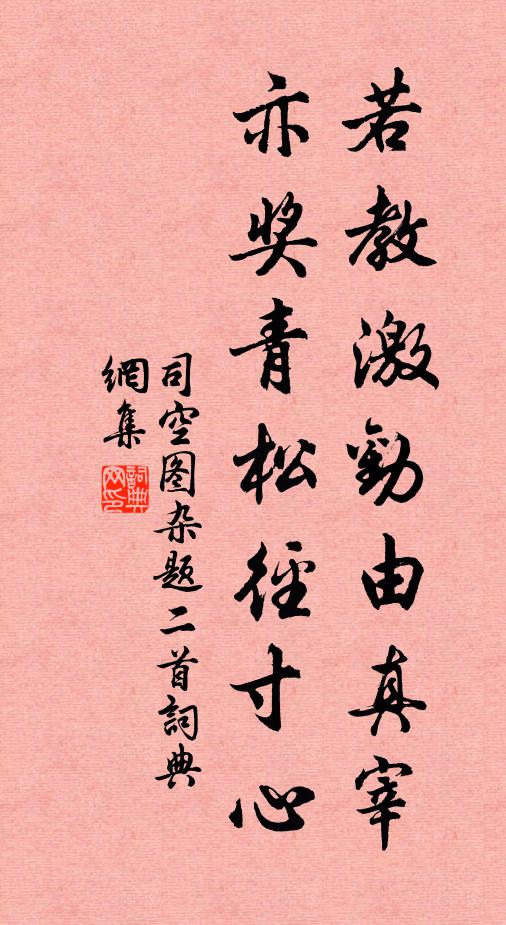 若教激勸由真宰
亦奖青松徑寸心
司空图杂题二首詞典
網集
詞典
网印